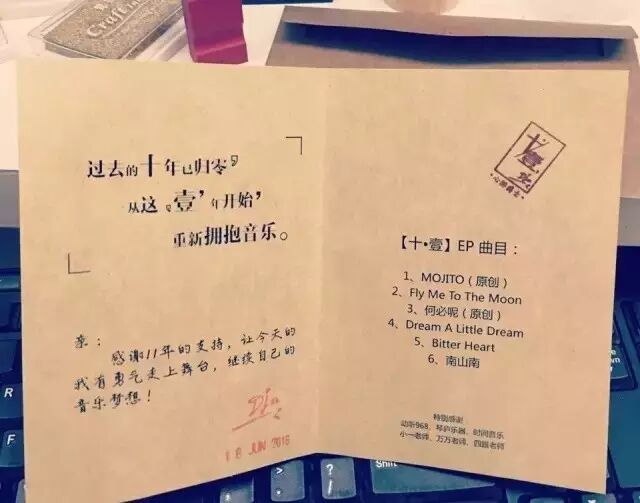 Craft
过去的十年已归零，
从这『壹’年开始，
重新拥抱音乐。
亲：
感谢11年的支持，让今天的
我有勇气走上舞台，继续自己的
音乐梦想！
18 JUN 2016
十·壹
·心游爵士·
【十•壹】EP 曲目：
1、MOJITO（原创）
2、Fly Me To The Moon
3、何必呢（原创）
4、Dream A Little Dream
5、Bitter Heart
6、南山南
特别感谢：
动听968、琴庐乐器、时间音乐
小一老师、万万老师、四眼老师
Shift